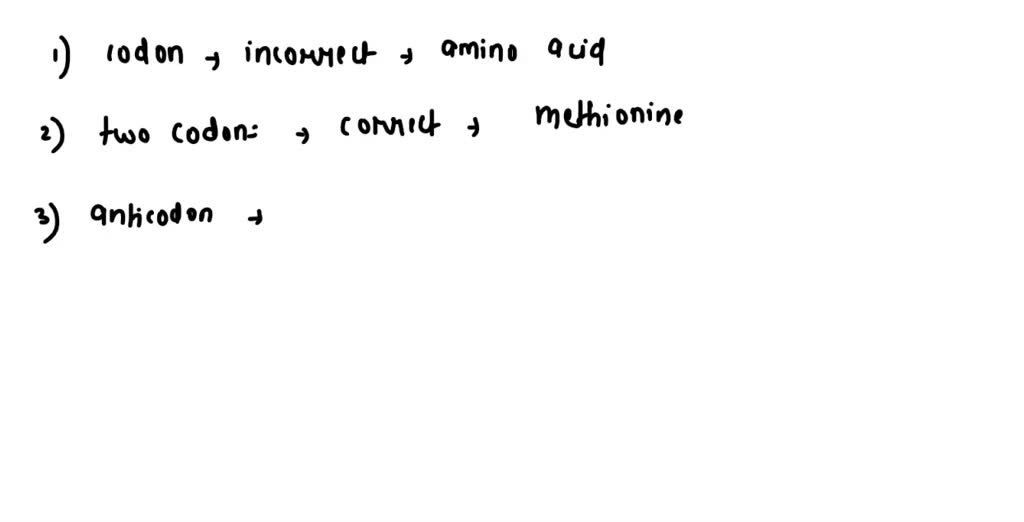 1) codon → incorrect → amino acid
2) two codon: → correct → methionine
3) anticodon →